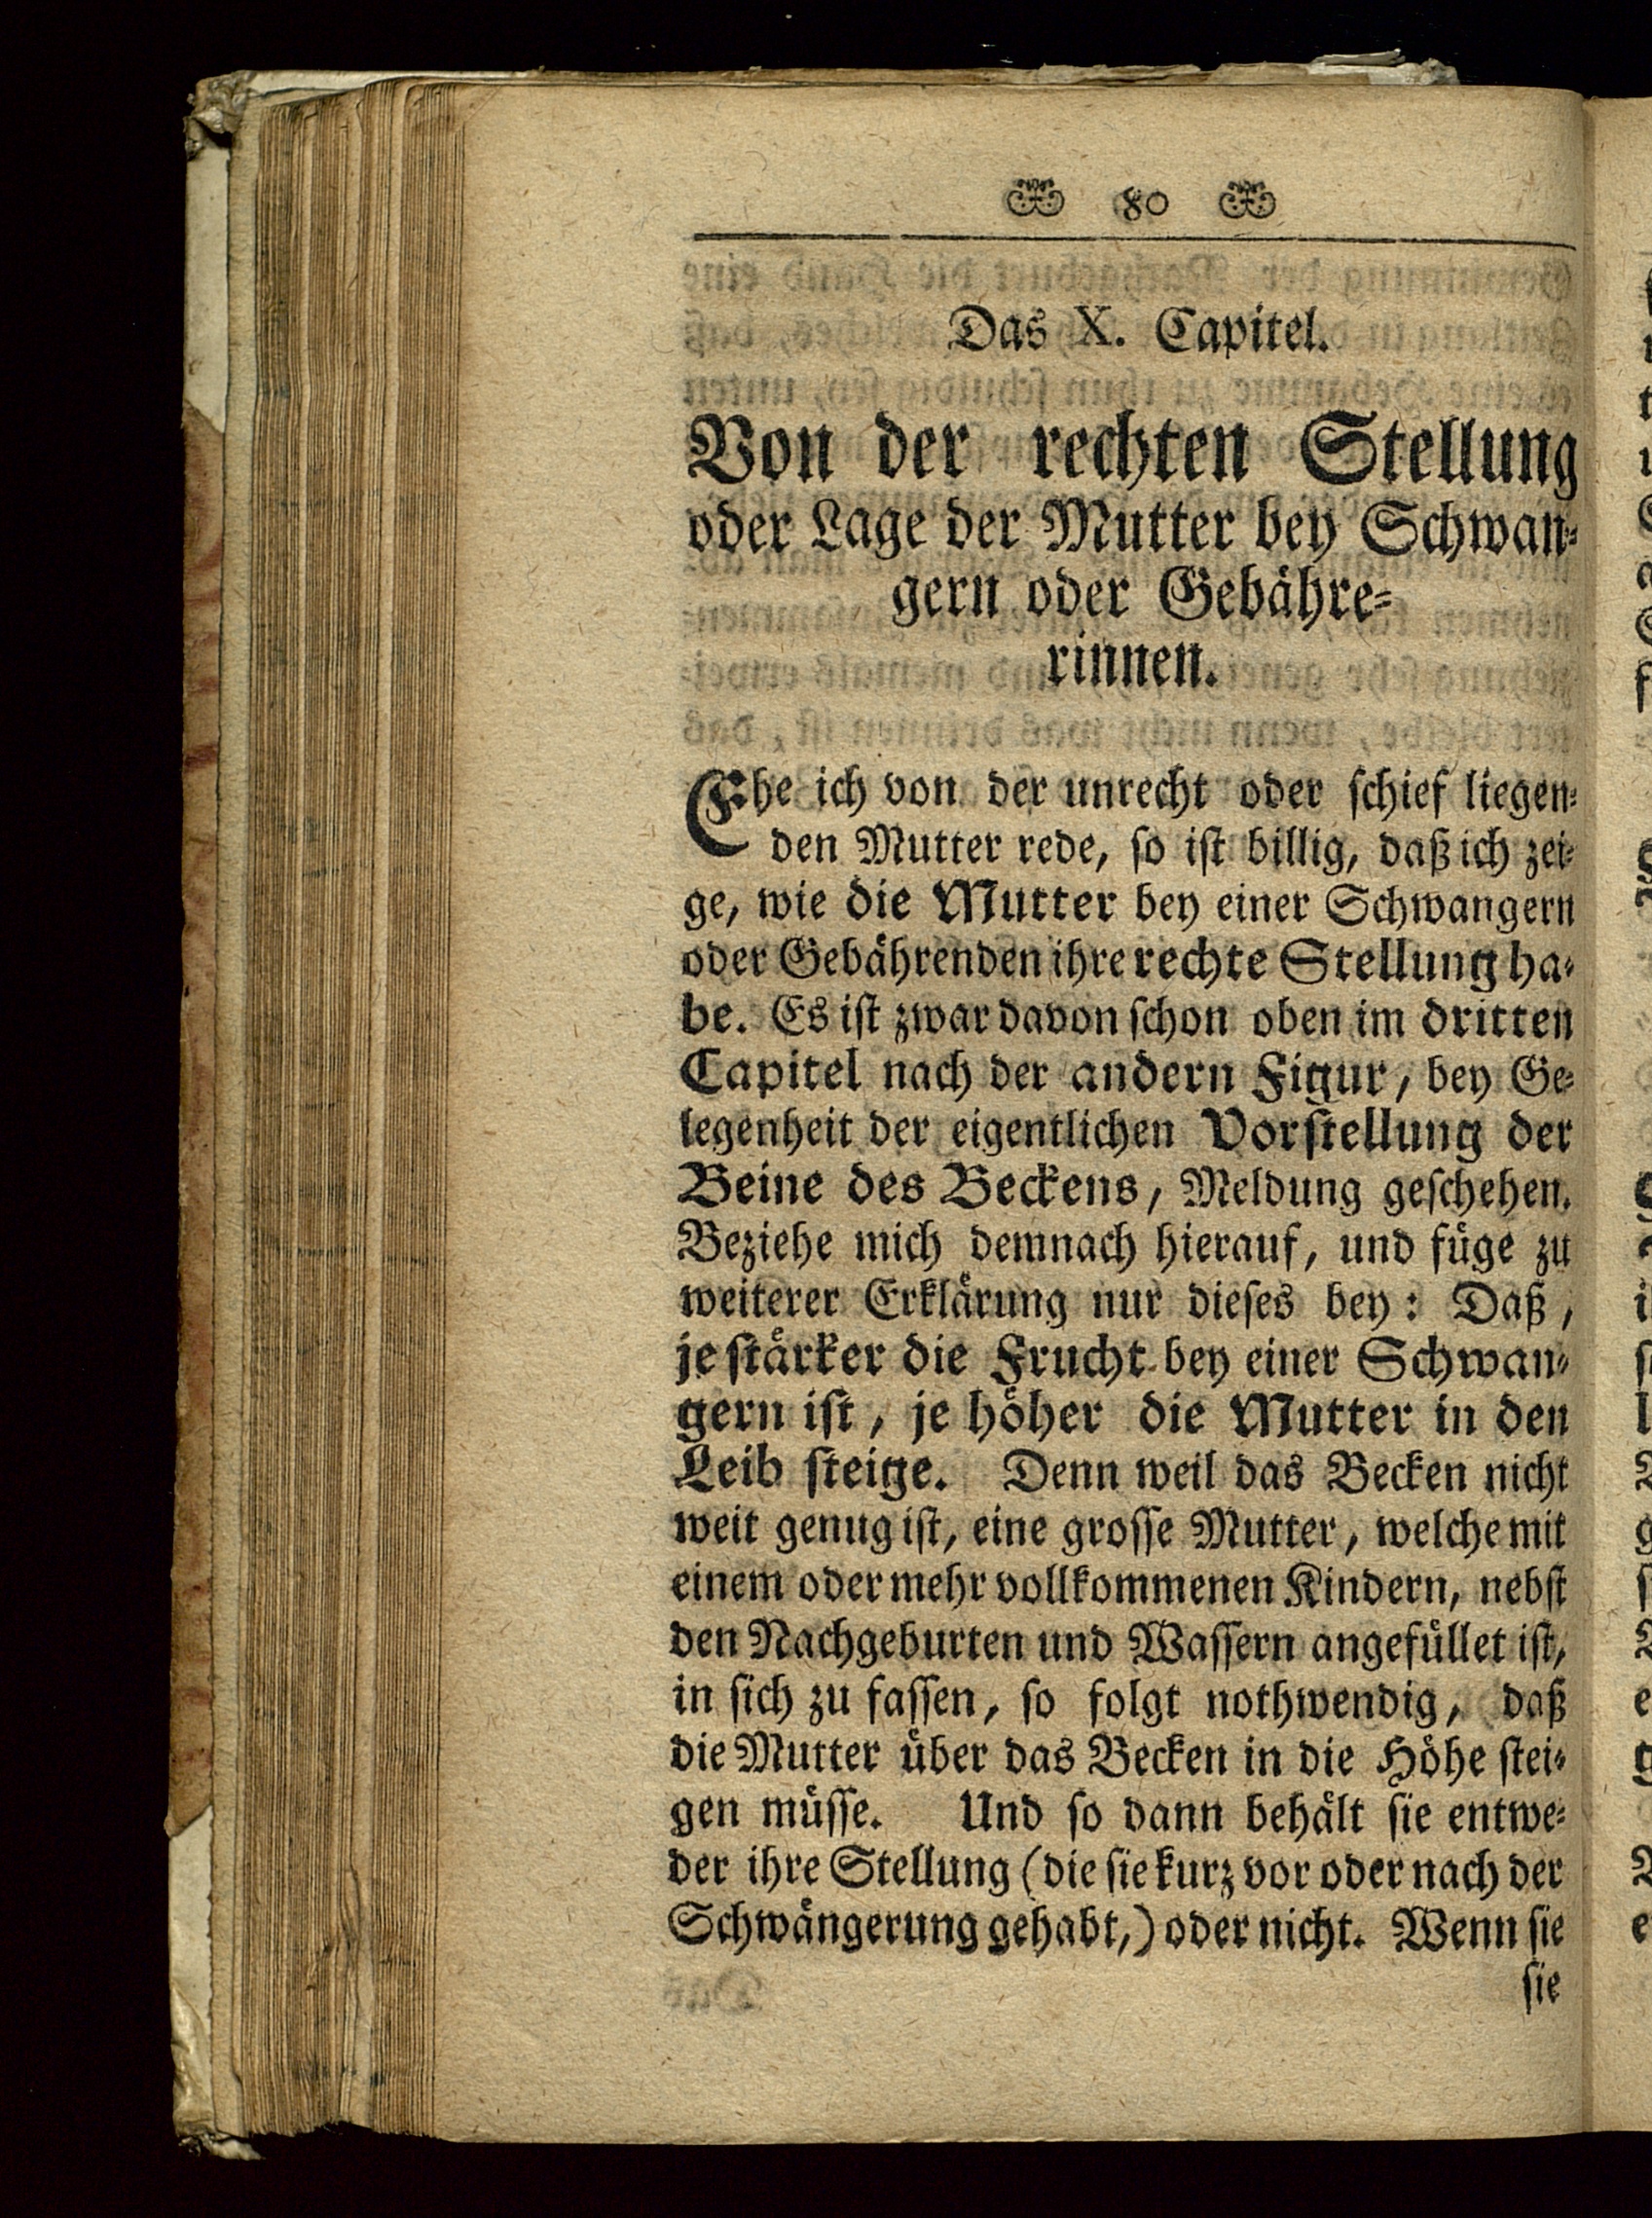 80
Das X. Capitel.
Von der rechten Stellung
oder Lage der Mutter bey Schwan-
gern oder Gebähre-
rinnen.
Ehe ich von der unrecht oder schief liegen-
den Mutter rede, so ist billig, daß ich zei-
ge, wie die Mutter bey einer Schwangern
oder Gebährenden ihre rechte Stellung ha-
be. Es ist zwar davon schon oben im dritten
Capitel nach der andern Figur, bey Ge-
legenheit der eigentlichen Vorstellung der
Beine des Beckens, Meldung geschehen.
Beziehe mich demnach hierauf, und füge zu
weiterer Erklärung nur dieses bey: Daß,
je stärker die Frucht bey einer Schwan-
gern ist, je höher die Mutter in den
Leib steige. Denn weil das Becken nicht
weit genug ist, eine grosse Mutter, welche mit
einem oder mehr vollkommenen Kindern, nebst
den Nachgeburten und Wassern angefüllet ist,
in sich zu fassen, so folgt nothwendig, daß
die Mutter über das Becken in die Höhe stei-
gen müsse. Und so dann behält sie entwe-
der ihre Stellung (die sie kurz vor oder nach der
Schwängerung gehabt,) oder nicht. Wenn sie
sie